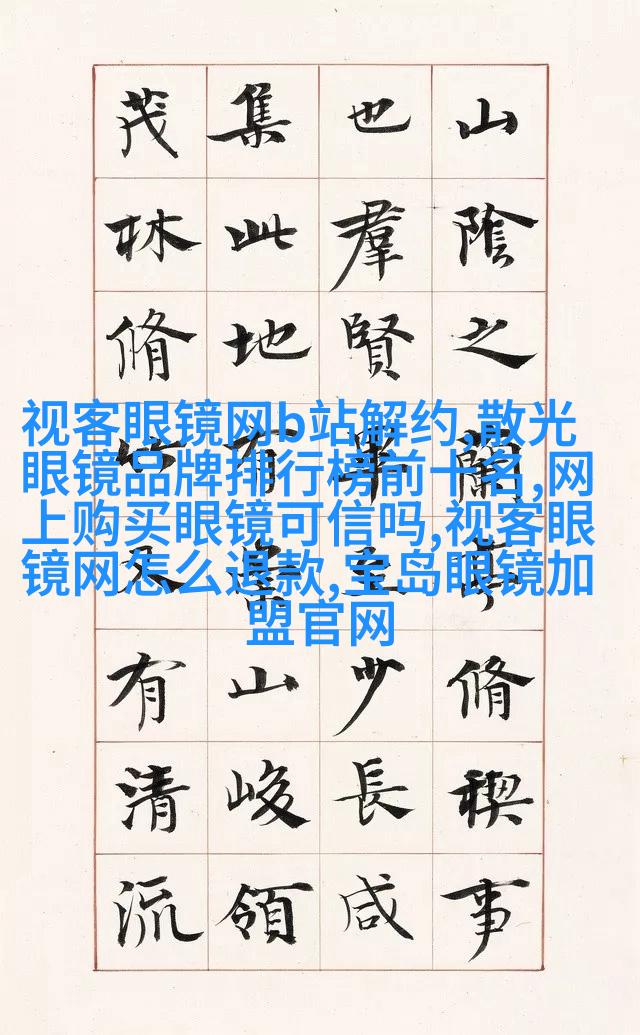 山陰之蘭亭脩禊事
也羣賢畢至少長咸
集此地有崇山峻領
茂林脩竹又有清流
视客眼镜网b站解约,散光
眼镜品牌排行榜前十名,网
上购买眼镜可信吗,视客眼
镜网怎么退款,宝岛眼镜加
盟官网